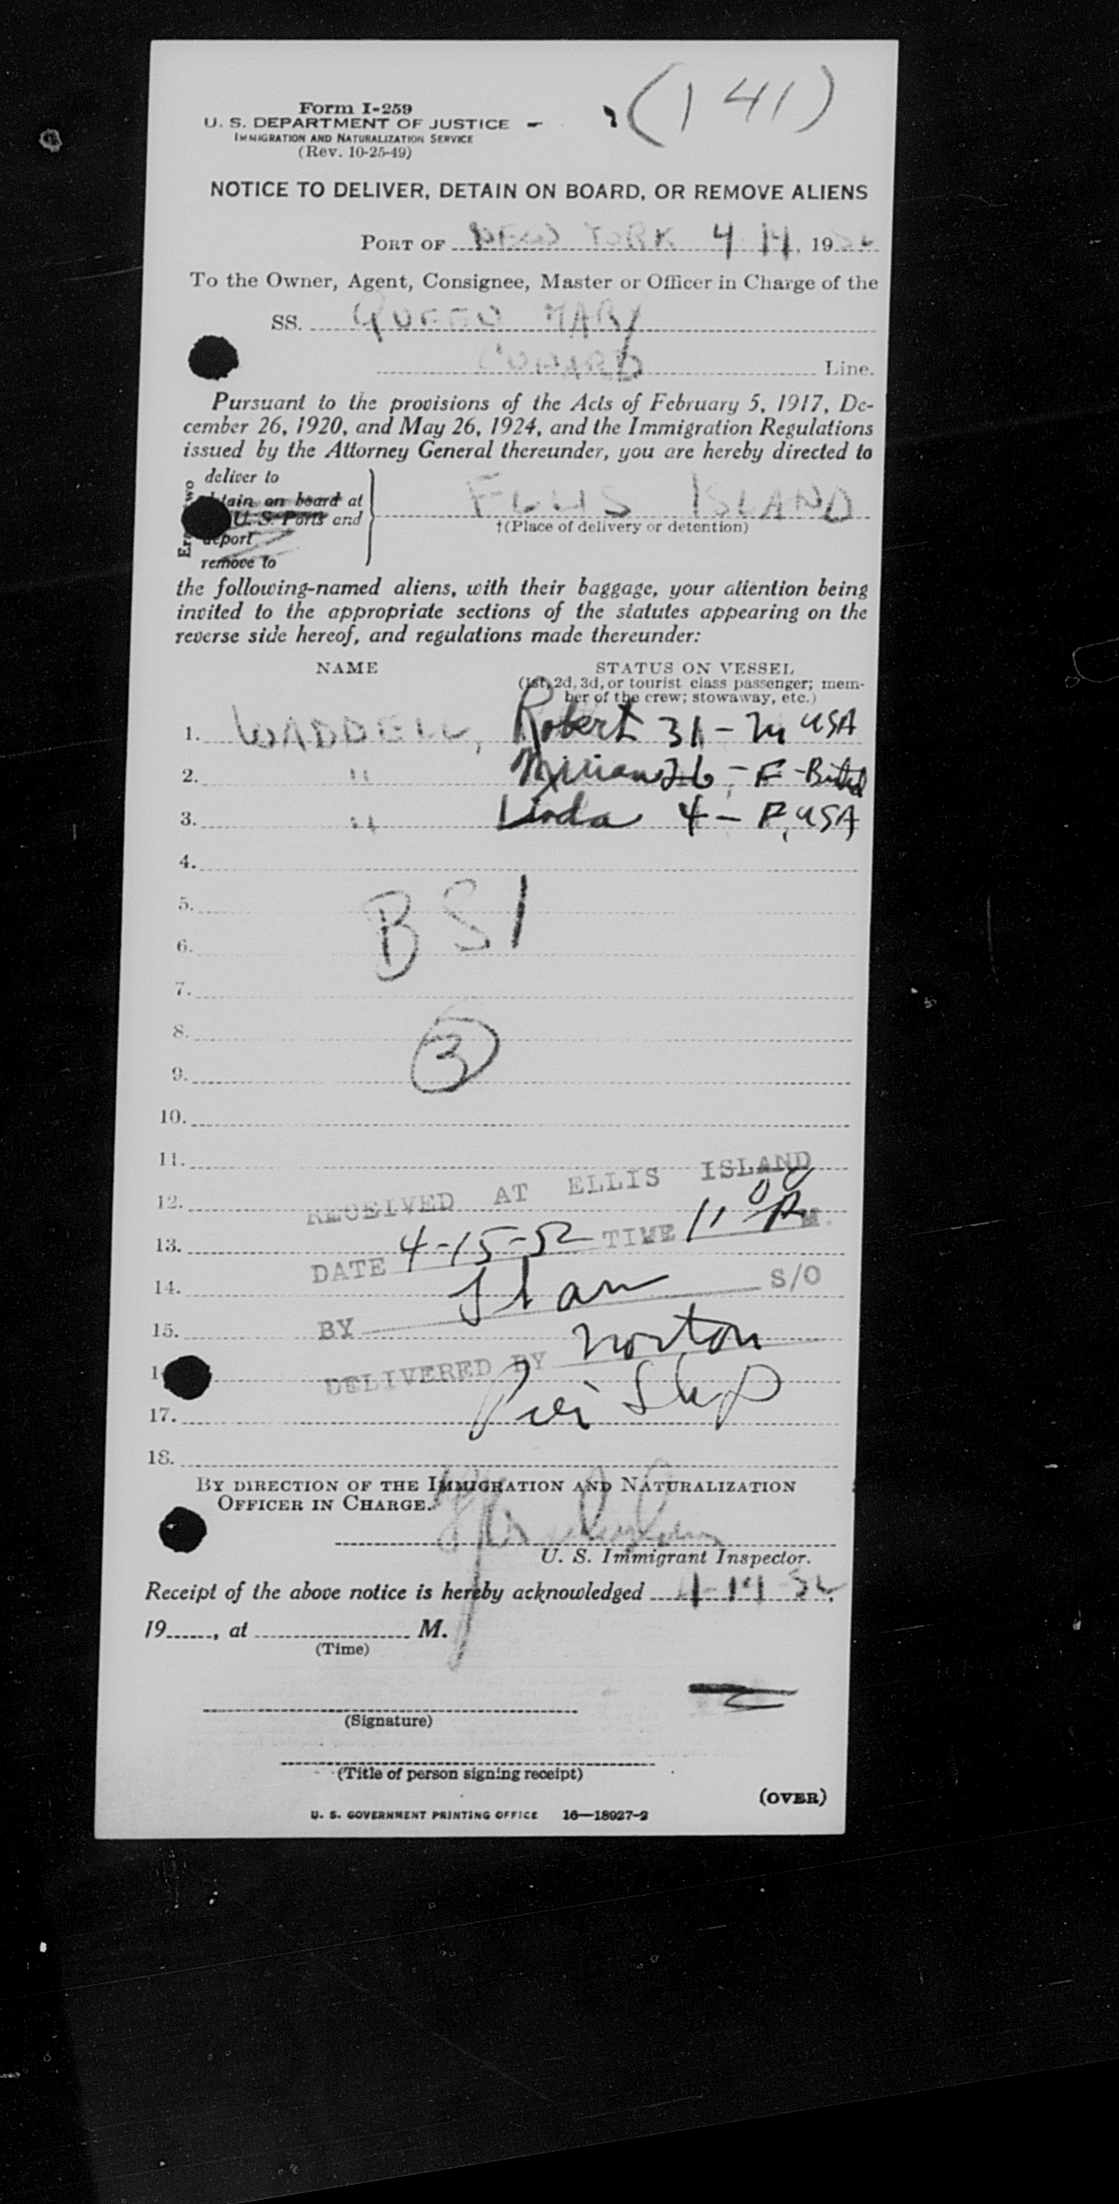 (141)
Form I-259
U. S. DEPARTMENT OF JUSTICE
IMMIGRATION AND NATURALIZATION SERVICE
(Rev. 10-25-49)
NOTICE TO DELIVER, DETAIN ON BOARD, OR REMOVE ALIENS
PORT OF NEW YORK 4 14, 1952
To the Owner, Agent, Consignee, Master or Officer in Charge of the
SS. QUEEN MARY
CUNARD Line.
Pursuant to the provisions of the Acts of February 5, 1917, De-
cember 26, 1920, and May 26, 1924, and the Immigration Regulations
issued by the Attorney General thereunder, you are hereby directed to
deliver to
on board at
U. S. Ports and
remove to
ELLIS ISLAND
†(Place of delivery or detention)
the following-named aliens, with their baggage, your attention being
invited to the appropriate sections of the statutes appearing on the
reverse side hereof, and regulations made thereunder:
NAME STATUS ON VESSEL
(1st, 2d, 3d, or tourist class passenger; mem-
ber of the crew; stowaway, etc.)
1. WADDELL, Robert 31 - M USA
2. " 26 - F -
3. " Linda 4 - F, USA
4.
5.
6.
BSI
7.
8.
3
9.
10.
11.
RECEIVED AT ELLIS ISLAND
12.
13.
DATE 4-15-52 TIME 11 00 P M.
14.
BY S/O
15.
DELIVERED BY Norton
17.
18.
BY DIRECTION OF THE IMMIGRATION AND NATURALIZATION
OFFICER IN CHARGE.
U. S. Immigrant Inspector.
Receipt of the above notice is hereby acknowledged 4-14-52,
19......, at M.
(Time)
(Signature)
(Title of person signing receipt)
(OVER)
U. S. GOVERNMENT PRINTING OFFICE 16—18927-2